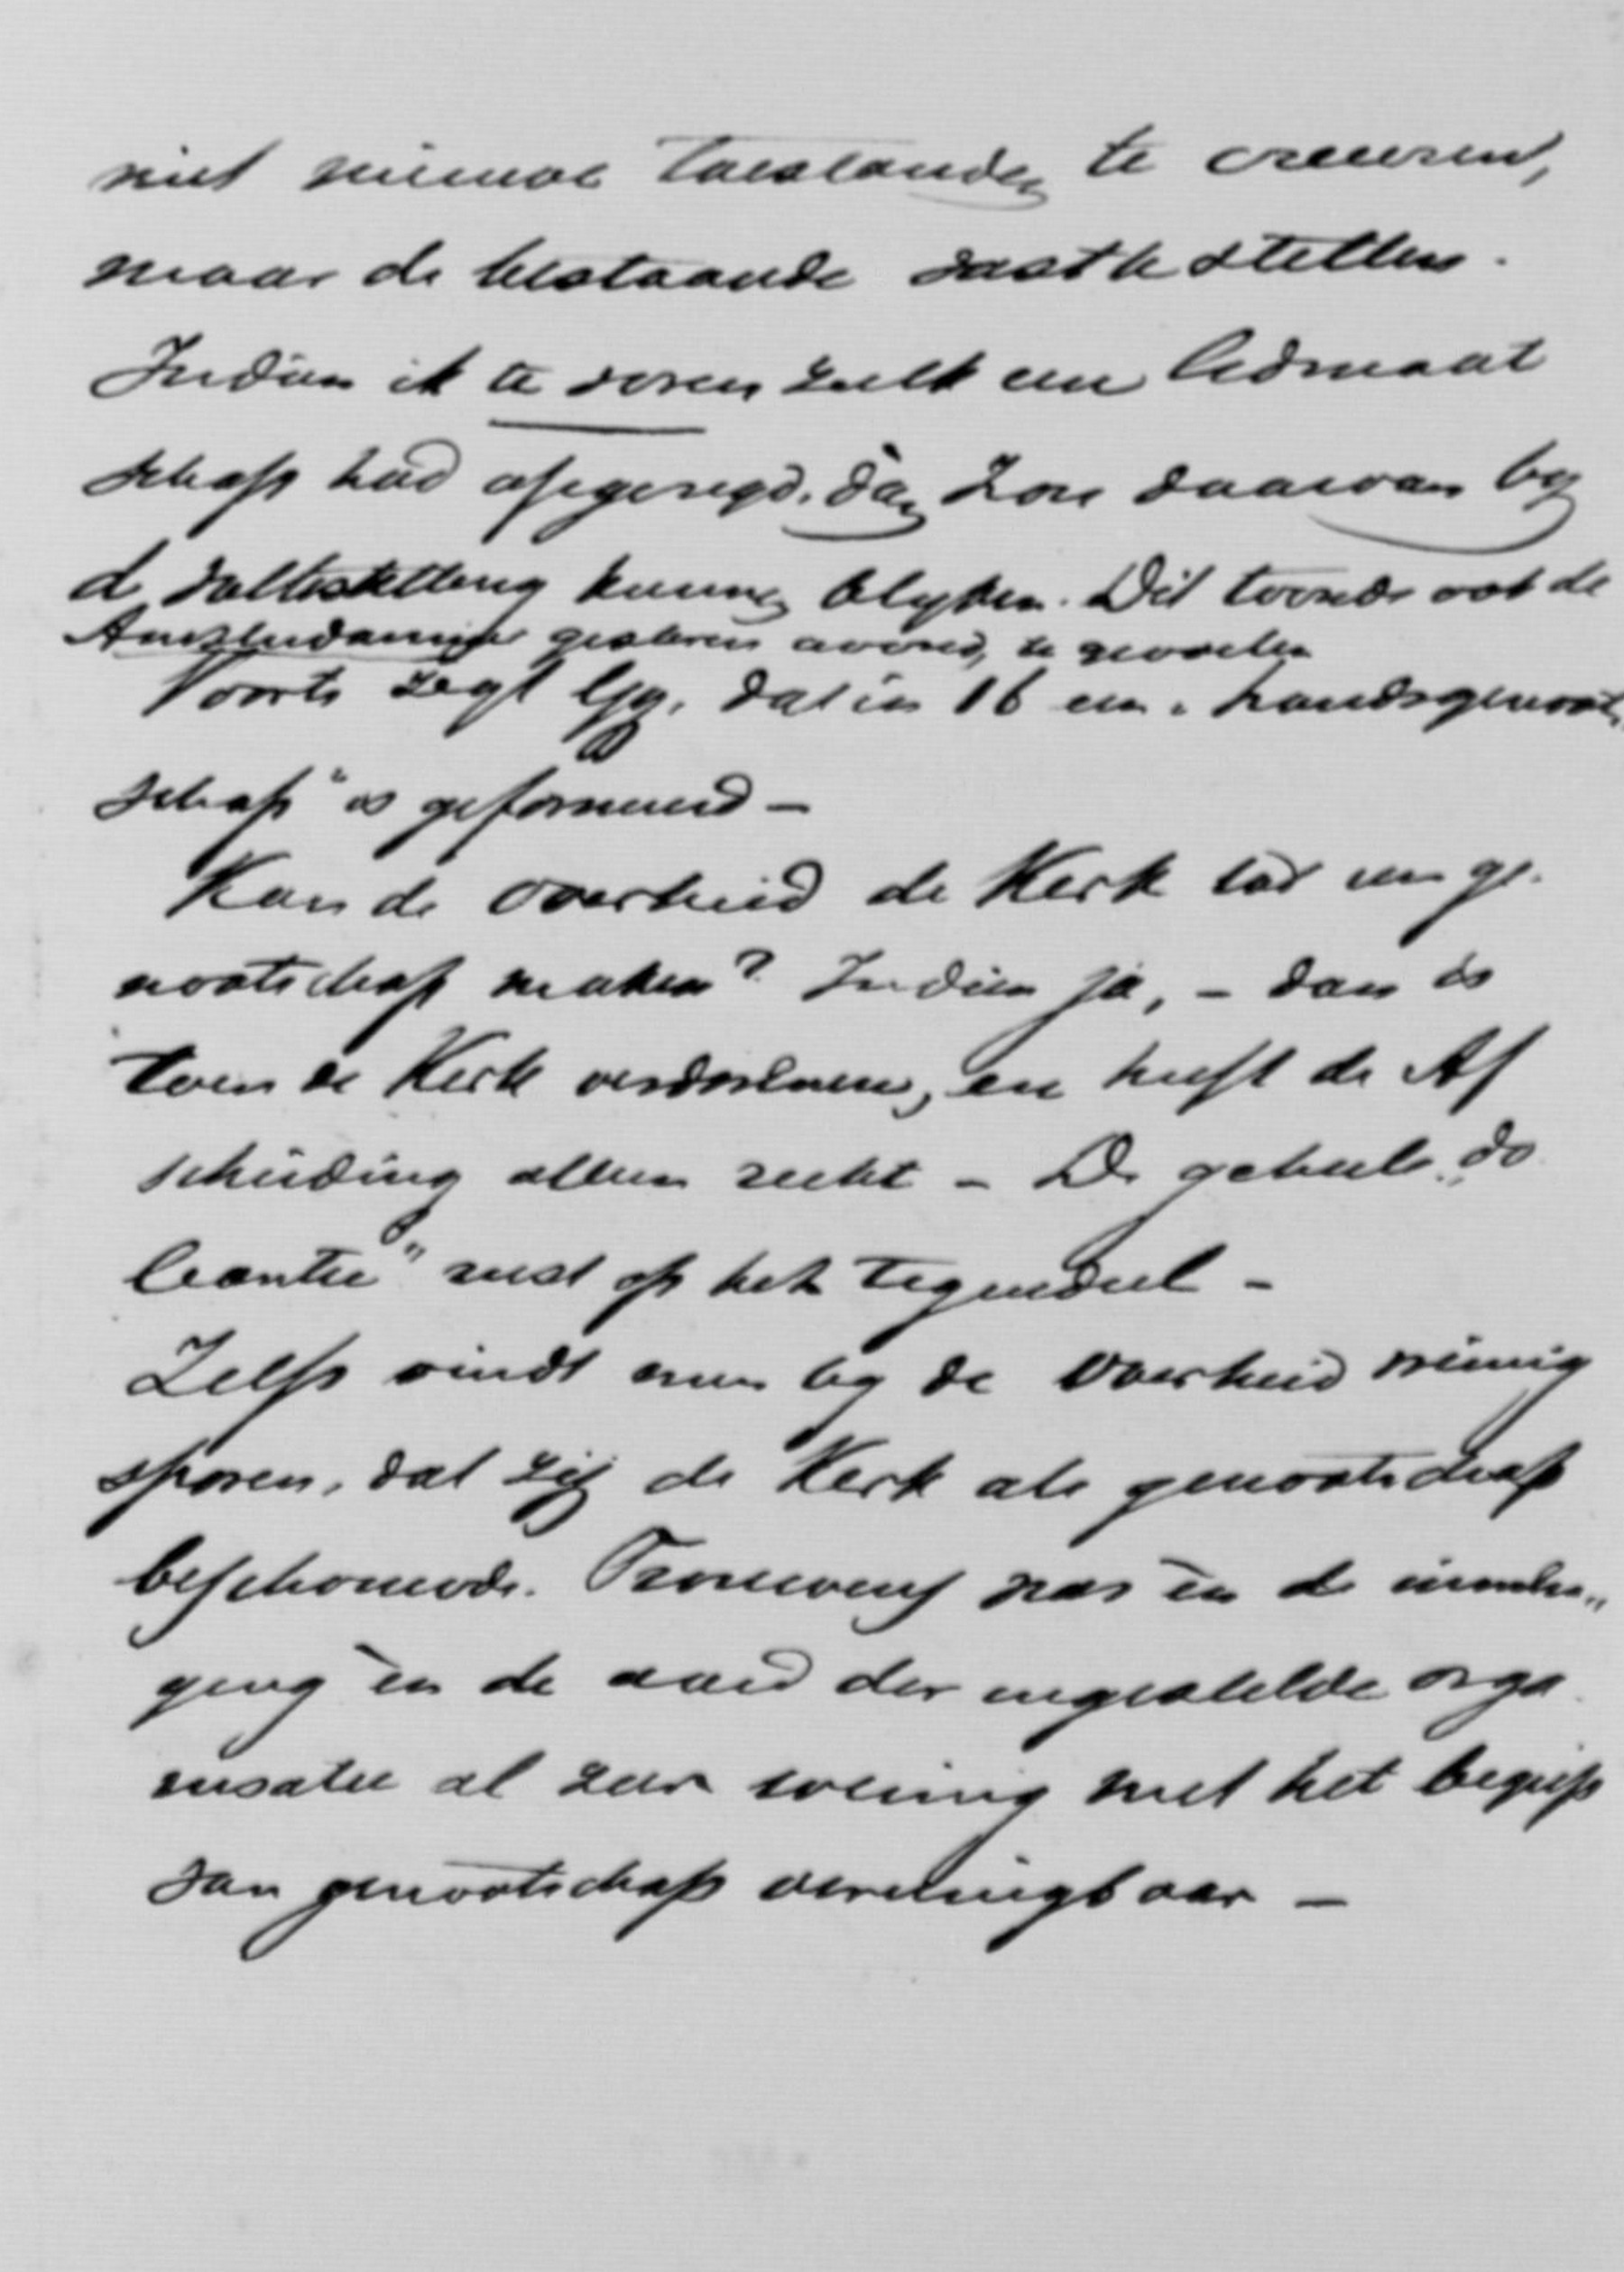 niet nieuwe toestanden te creëeren,
maar de bestaande vast te stellen.
Indien ik te voren zulk een lidmaat
schap had afgezegd, dan zou daarvan by
de kunnen blyken. Dit toonde ook de
gisteren avond, te gevoelen
Voorts zegt Gy, dat in 16 een "handsgenoot
schap" is geformeerd –
Kan de overheid de Kerk tot een ge-
nootschap maken? Indien ja, – dan is
toen de Kerk verdwenen, en heeft de Af
scheiding alleen recht – De geheele "do
leantie" rust op het tegendeel –
Zelfs vindt men by de Overheid weinig
sporen, dat zij de Kerk als genootschap
beschouwde. Trouwens was èn de
èn de aard der ingestelde orga
nisatie al zeer weinig met het begrip
van genootschap vereenigbaar –